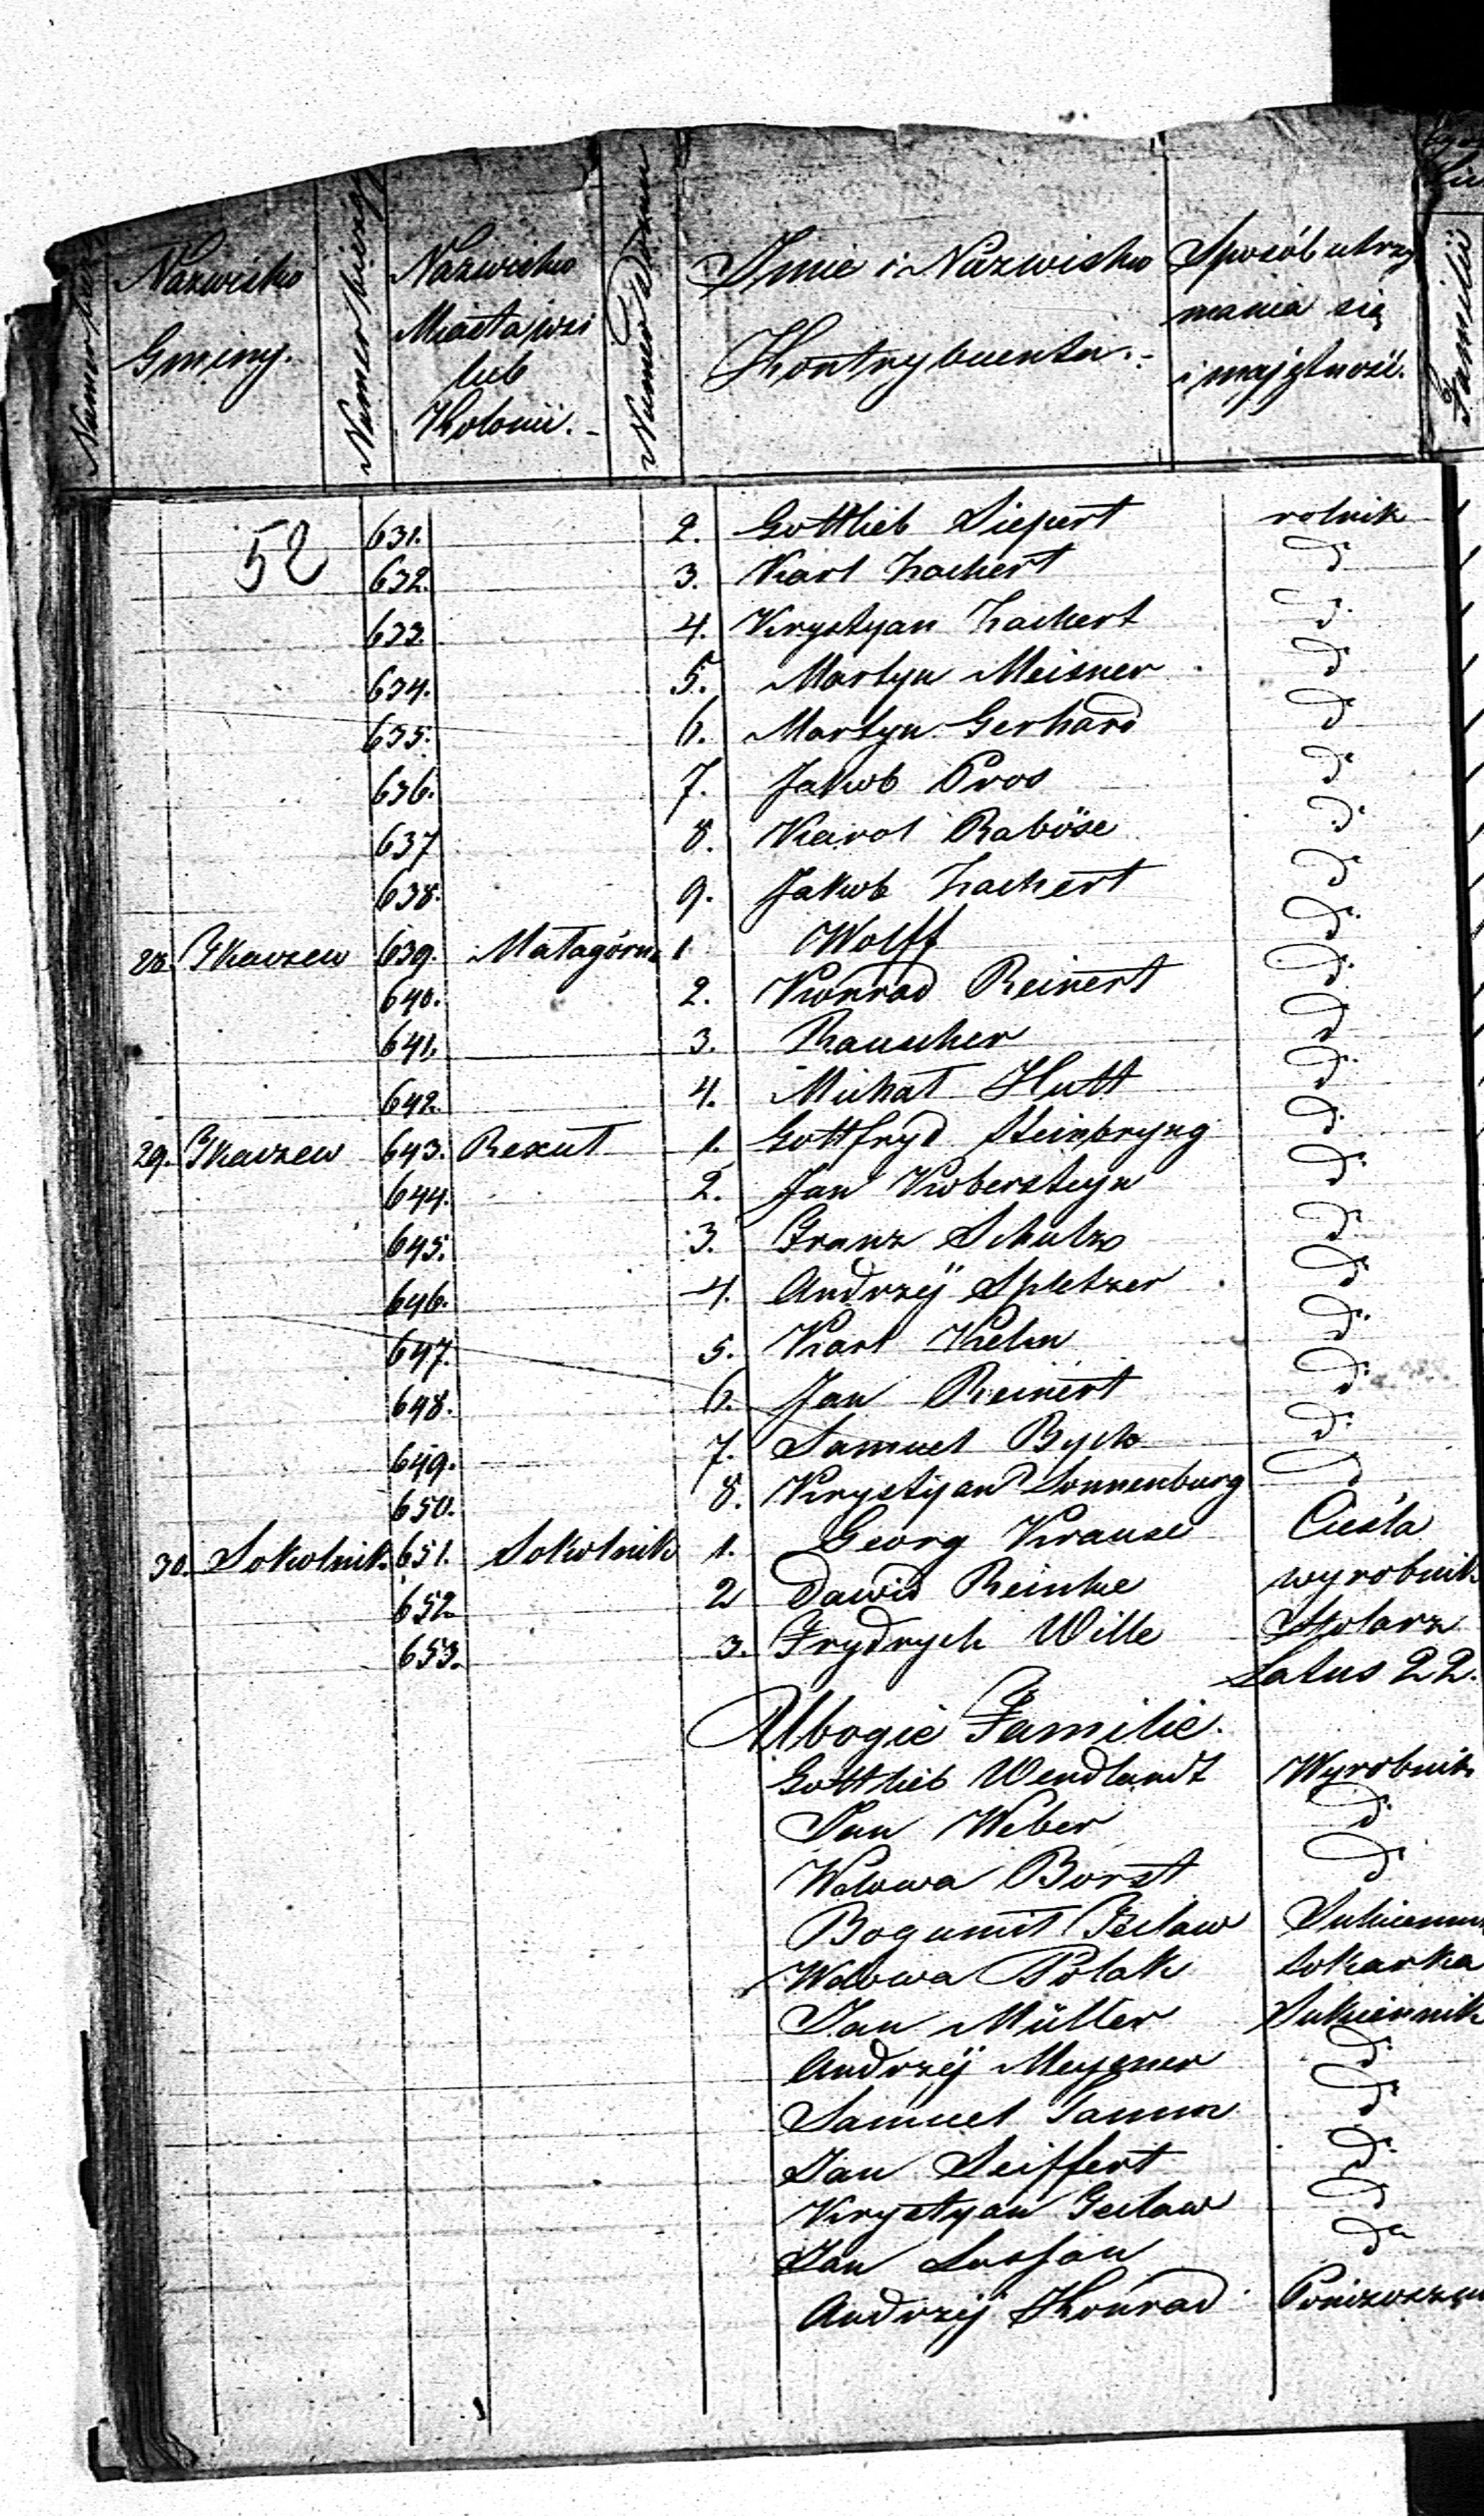 Nazwisko Gminy.
Numer bieżący
Nazwisko Miasta, wsi lub Kolonii.
Numer Domu
Imie i Nazwisko Kontrybuenta.
Sposób utrzymania się i majętność.
Familii
52
631. 2. Gottlieb Siepert rolnik
632. 3. Karl Zachert d
633. 4. Krystyan Zachert d
634. 5. Martyn Meisner d
635. 6. Martyn Gerhard d
636. 7. Jakob Pros d
637 8. Karol Raböse d
638. 9. Jakob Zachert d
28. 639. Małagórna 1 Wolff d
640. 2. Konrad Reinert d
641. 3. Rauscher d
642. 4. Michał Hutt d
29. 643. Rexuł 1. Gottfryd Steinbryng d
644. 2. Jan Kobersteyn d
645. 3. Franz Schulz d
646. 4. Andrzÿ Spletzer d
647. 5. Karl Kelm d
648. 6. Jan Reinert d
649. 7. Samuel d
650. 8. Krystyan Sonnenburg d
30. Sokolnik 651. Sokolnik 1. Georg Krause Cieśla
652. 2 Dawid Reinke wyrobnik
653. 3. Frydrych Wille Stolarz
Latus 22.
Ubogie Familie.
Gottlieb Wendlandt Wyrobnik
Jan Weber d
Wdowa Borszt d
Bogumił
Wdowa Polak
Jan Müller Sukiennik
Andrzÿ d
Samuel d
Jan Seiffert d
Krystyan d
Jan d
Andrzÿ Konrad